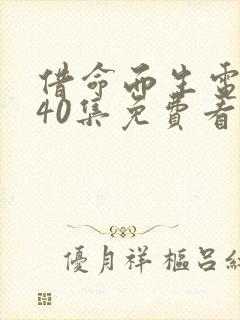 借命而生電
40集免費看
優月祥樞呂